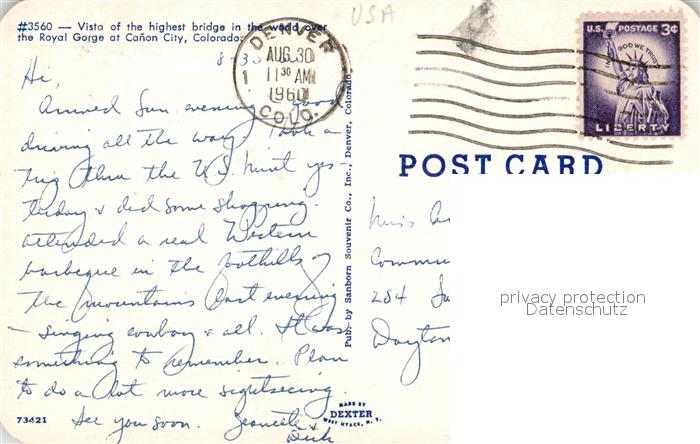 USA
#3560 — Vista of the highest bridge in the world over
the Royal Gorge at Cañon City, Colorado.
DENVER
1
AUG 30
11 30 AM
1960
COLO.
U.S. POSTAGE 3¢
IN GOD WE TRUST
LIBERTY
POST CARD
8-30
Hi,
Arrived Sun. evening. Good
driving all the way. Took a
trip thru the U.S. Mint yes-
terday & did some shopping.
Attended a real Western
barbeque in the foothills of
the mountains last evening
— singing cowboy & all. It was
something to remember. Plan
to do a lot more sightseeing.
See you soon. Jeanette &
Dick
Pub. by Sanborn Souvenir Co., Inc., Denver, Colorado
Miss
Commu
284
Dayton
privacy protection
Datenschutz
73421
MADE BY
DEXTER
WEST NYACK, N. Y.